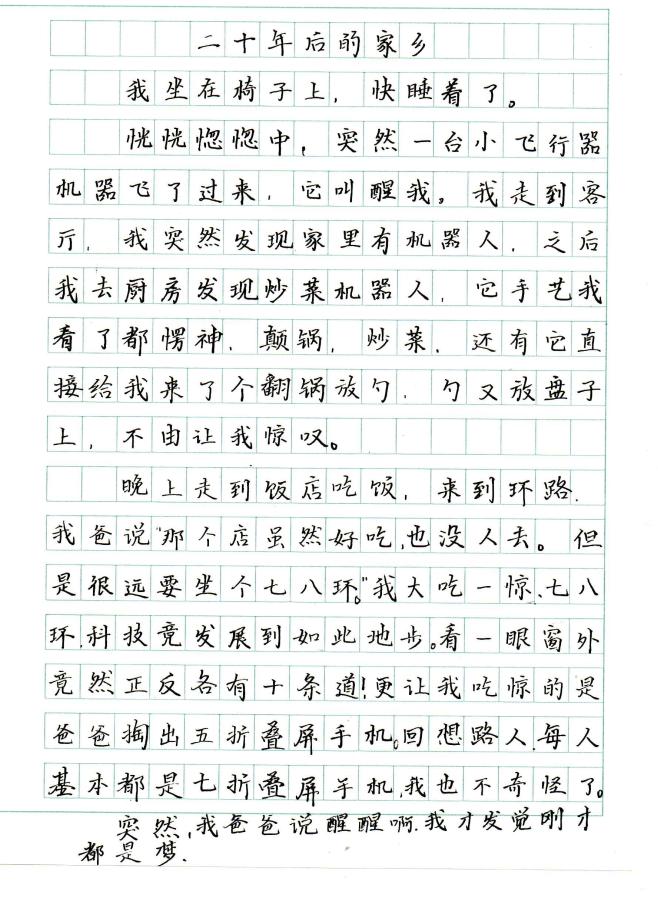 二十年后的家乡
我坐在椅子上，快睡着了。
恍恍惚惚中，突然一台小飞行器
机器飞了过来，它叫醒我。我走到客
厅，我突然发现家里有机器人，之后
我去厨房发现炒菜机器人，它手艺我
看了都愣神，颠锅，炒菜，还有它直
接给我来了个翻锅放勺，勺又放盘子
上，不由让我惊叹。
晚上走到饭店吃饭，来到环路.
我爸说"那个店虽然好吃,也没人去。但
是很远要坐个七八环。"我大吃一惊、七八
环,科技竟发展到如此地步。看一眼窗外
竟然正反各有十条道!更让我吃惊的是
爸爸掏出五折叠屏手机。回想路人,每人
基本都是七折叠屏手机,我也不奇怪了。
突然,我爸爸说醒醒啊.我才发觉刚才
都是梦.